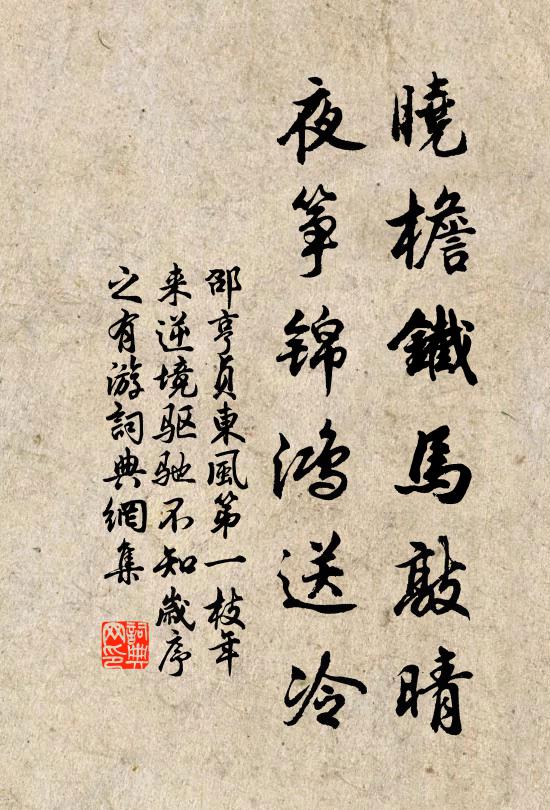 曉檐鐵馬敲晴
夜箏錦鴻送冷
邵亨貞東風第一枝年
来逆境驱驰不知歲序
之有游詞典網集
詞典
网印